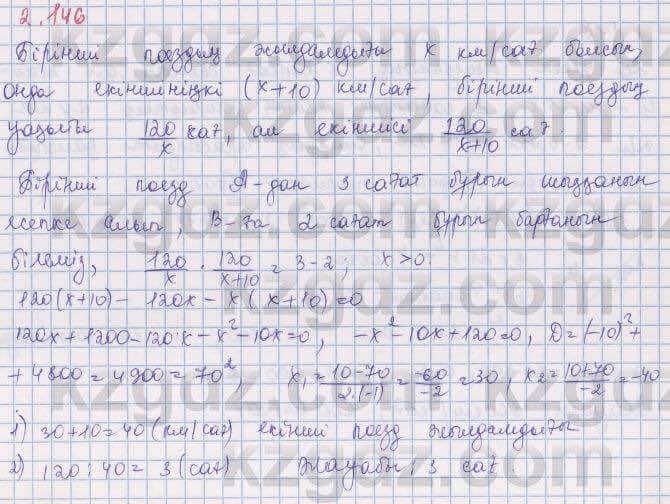 2.146
Бірінші поездың жылдамдығы x км/сағ болсын,
онда екіншінікі (x+10) км/сағ, бірінші поездың
уақыты 120/x сағ, ал екіншісі 120/x+10 сағ.
Бірінші поезд А-дан 3 сағат бұрын шыққанын
есепке алып, В-ға 2 сағат бұрын барғанын
білеміз, 120/x . 120/x+10 = 3-2; x>0.
120(x+10) - 120x - x(x+10)=0
120x+1200-120x-x²-10x=0, -x²-10x+120=0, D=(-10)²+
+4800=4900=70², x₁=10-70/2·(-1)=-60/-2=30, x₂=10+70/-2=-40
1) 30+10=40 (км/сағ) екінші поезд жылдамдығы
2) 120:40=3 (сағ) Жауабы: 3 сағ.
kzgdz.com